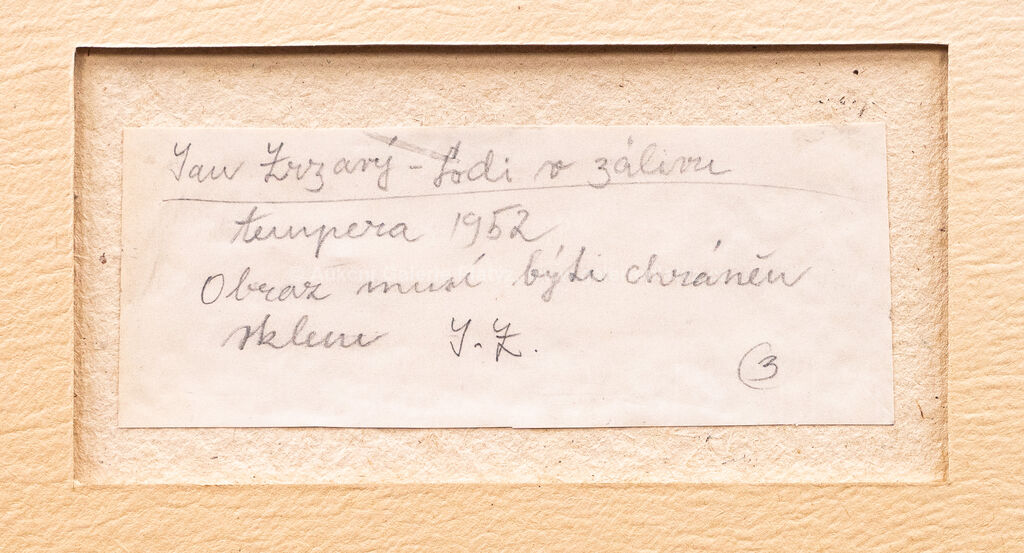 Jan Zrzavý - Lodi v zálivu
tempera 1952
Obraz musí býti chráněn
sklem J. Z.
3
© Aukční Galerie